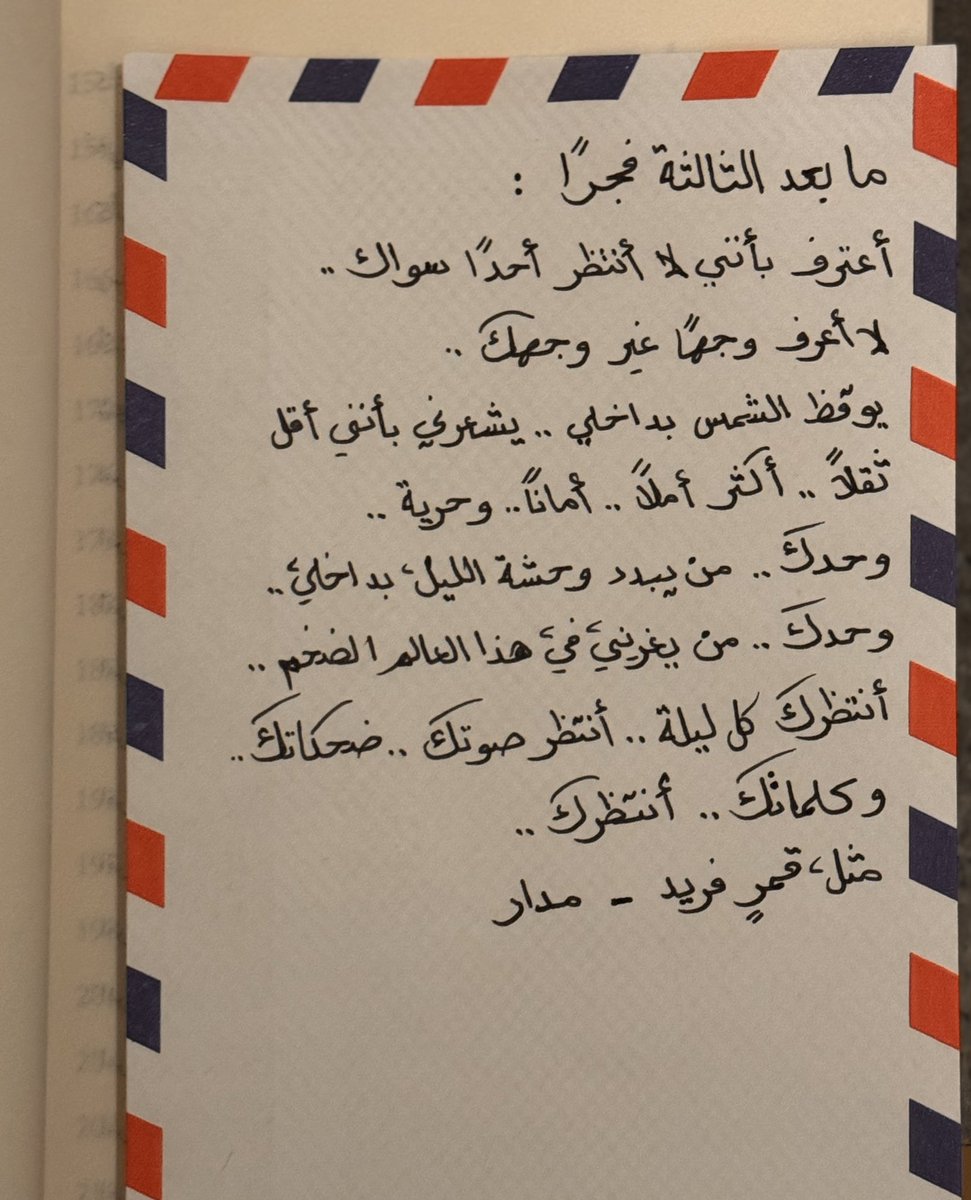 ما بعد الثالثة فجرًا :
أعترف بأنني لا أنتظر أحدًا سواك ..
لا أعرف وجهًا غير وجهك ..
يوقظ الشمس بداخلي .. يشعرني بأنني أقل
ثقلاً .. أكثر أملاً .. أمانًا .. وحرية ..
وحدك .. من يبدد وحشة الليل بداخلي ..
وحدك .. من يغريني في هذا العالم الضخم ..
أنتظرك كل ليلة .. أنتظر صوتك .. ضحكاتك ..
وكلماتك .. أنتظرك ..
مثل قمرٍ فريد - مدار